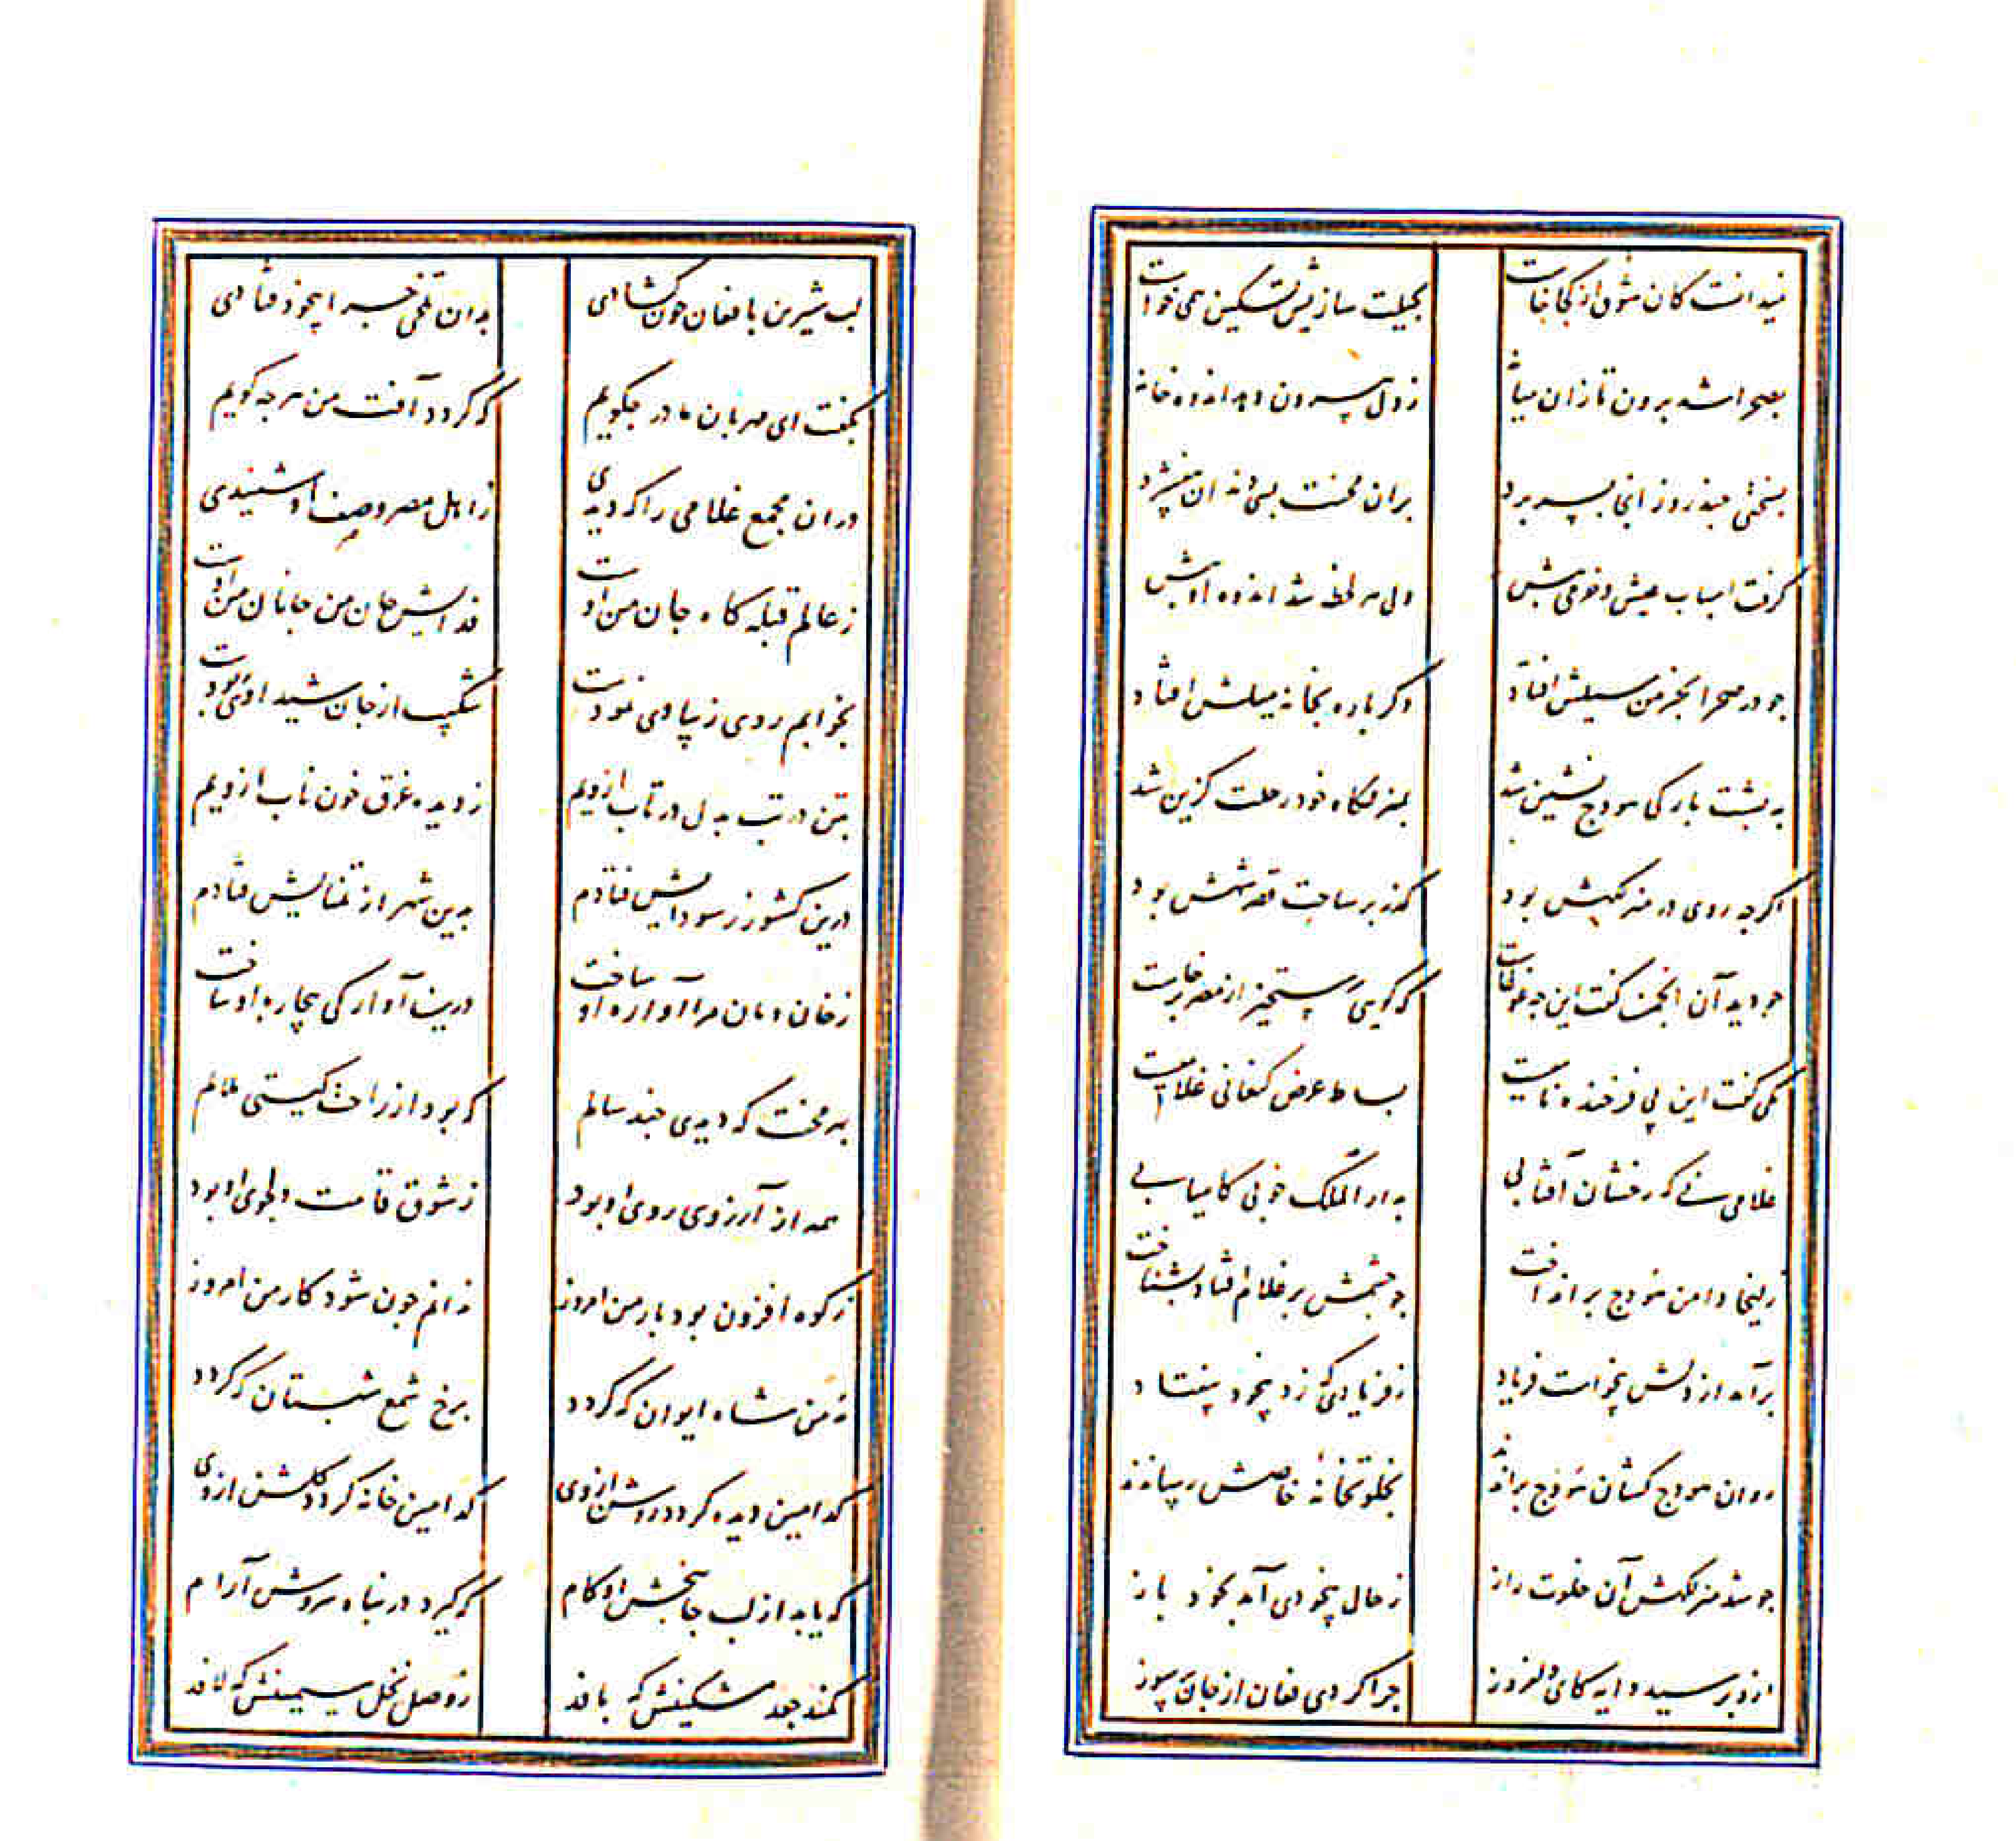 نمیدانست کان شوق از کجا خاست بحیلت سازیش تسکین همی خواست
بصحرا شد برون تا زان میانه ز دل بیرون دهد اندوه خانه
بسختی چند روز آنجا بسر برد بران محنت بسی دندان بیفشرد
گرفت اسباب عیش و خرمی پیش ولی هر لحظه شد اندوه او بیش
چو در صحرا بخرمن سیلش افتاد دگر باره بخانه میلش افتاد
به پشت بارگی هودج نشین شد بمنزلگاه خود رحلت گزین شد
اگر چه روی در منزلگهش بود گذر بر ساحت قصر شهش بود
چو دید آن انجمن گفت این چه غوغاست که گویی رستخیز از مصر برخاست
یکی گفت این پی فرخنده نامیست بساط عرض کنعانی غلامیست
غلامی نی که رخشان آفتابی بدار الملک خوبی کامیابی
زلیخا دامن هودج برانداخت چو چشمش بر غلام افتاد بشناخت
برآمد از دلش بیخواست فریاد ز فریادی که زد بیخود بیفتاد
روان هودج کشان هودج براندند بخلوتخانه خاصش رساندند
چو شد منزلگهش آن خلوت راز ز حال بیخودی آمد بخود باز
ازو پرسید دایه کای دلفروز چرا کردی فغان از جان پر سوز
لب شیرین بافغان چون گشادی بدان تلخی چرا بیخود فتادی
بگفت ای مهربان مادر چگویم که گردد آفت من هر چه گویم
دران مجمع غلامی را که دیدی ز اهل مصر وصف او شنیدی
ز عالم قبله گاه جان من اوست فدایش جان من جانان من اوست
بخوابم روی زیبا وی نمودست شکیب از جان شیدا وی ربودست
بتن در تب بدل در تاب ازویم ز دیده غرق خون ناب ازویم
درین کشور ز سودایش فتادم بدین شهر از تمنایش فتادم
ز خان و مان مرا آواره او ساخت درین آوارگی بیچاره او ساخت
به محنت که دیدی چند سالم که بود از راحت گیتی ملالم
همه از آرزوی روی او بود ز شوق قامت دلجوی او بود
ز کوه افزون بود بار من امروز ندانم چون شود کار من امروز
مه من شاه ایوان که گردد برخ شمع شبستان که گردد
کدامین دیده گردد روشن از وی کدامین خانه گردد گلشن از وی
که یابد از لب جانبخش او کام که گیرد در پناه سروش آرام
کمند جعد مشکینش که بافد ز وصل نخل سیمینش که لافد